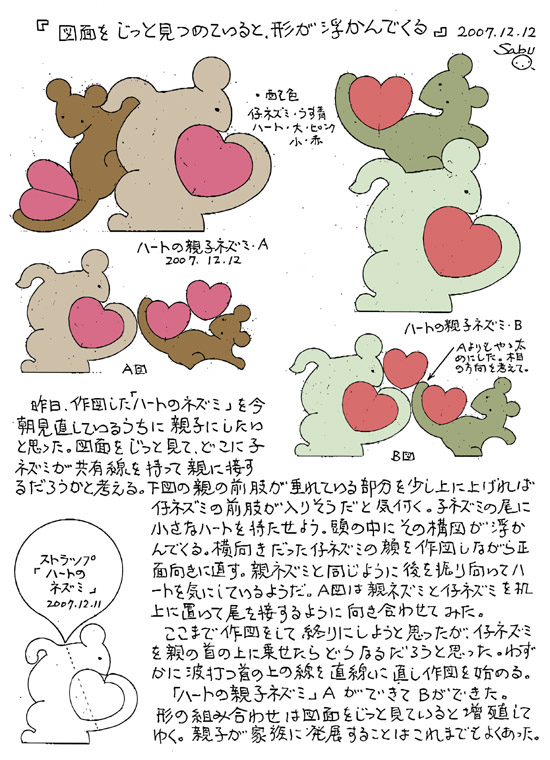 『図面をじっと見つめていると、形が浮かんでくる』 2007.12.12
Sabu
・配色
仔ネズミ・うす青
ハート・大・ピンク
小・赤
ハートの親子ネズミ・A
2007.12.12
A図
ハートの親子ネズミ・B
Aよりもやゝ太
めにした。木目
の方向を考えて。
B図
昨日、作図した「ハートのネズミ」を今
朝見直しているうちに親子にしたい
と思った。図面をじっと見て、どこに子
ネズミが共有線を持って親に接す
るだろうかと考える。下図の親の前肢が垂れている部分を少し上に上げれば
仔ネズミの前肢が入りそうだと気付く。子ネズミの尾に
小さなハートを持たせよう。頭の中にその構図が浮か
んでくる。横向きだった仔ネズミの顔を作図しながら正
面向きに直す。親ネズミと同じように後を振り向いてハ
ートを気にしているようだ。A図は親ネズミと仔ネズミを机
上に置いて尾を接するように向き合わせてみた。
ここまで作図をして終りにしようと思ったが、仔ネズミ
を親の首の上に乗せたらどうなるだろうと思った。わず
かに波打つ首の上の線を直線に直し作図を始める。
「ハートの親子ネズミ」AができてBができた。
形の組み合わせは図面をじっと見ていると増殖して
ゆく。親子が家族に発展することはこれまでもよくあった。
ストラップ
「ハートの
ネズミ」
2007.12.11